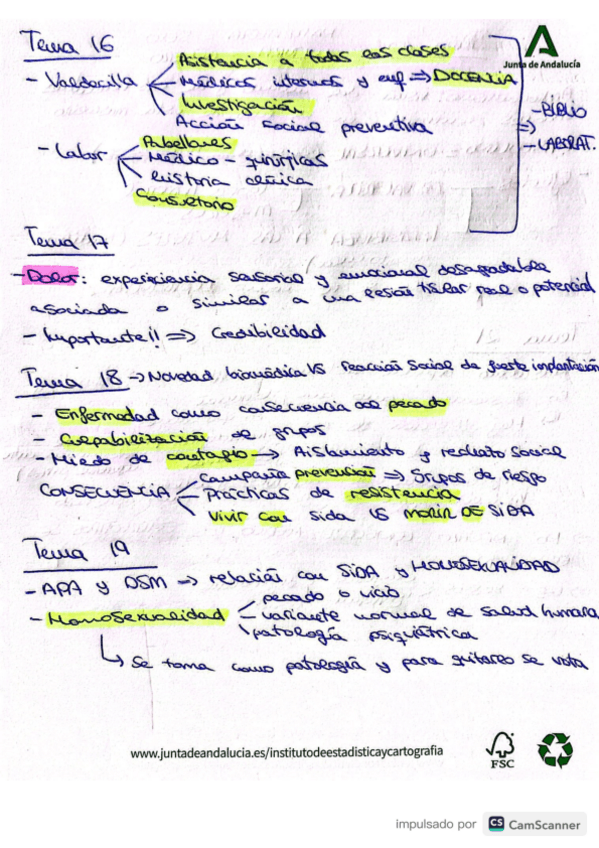 Tema 16
Junta de Andalucía
- Valdecilla
Asistencia a todas las clases
Médicos internos y enf => DOCENCIA
Investigación
Acción social preventiva
=> - BIBLIO
- LABORAT.
- Labor
Pabellones
Médico - quirúrgicas
historia clínica
Consultorio
Tema 17
- Dolor: experiencia sensorial y emocional desagradable
asociada o similar a una lesión tisular real o potencial
- Importante!! => Credibilidad
Tema 18 -> Novedad biomédica VS reacción social de fuerte implantación
- Enfermedad como consecuencia del pecado
- Culpabilización de grupos
- Miedo de contagio -> Aislamiento y rechazo social
CONSECUENCIA
Campaña prevención => Grupos de riesgo
Prácticas de resistencia
Vivir con sida VS MORIR DE SIDA
Tema 19
- APA y DSM -> relación con SIDA y HOMOSEXUALIDAD
- Homosexualidad
pecado o vicio
variante normal de salud humana
patología psiquiátrica
Se toma como patología y para quitarlo se vota
www.juntadeandalucia.es/institutodeestadisticaycartografia
FSC
impulsado por CS CamScanner